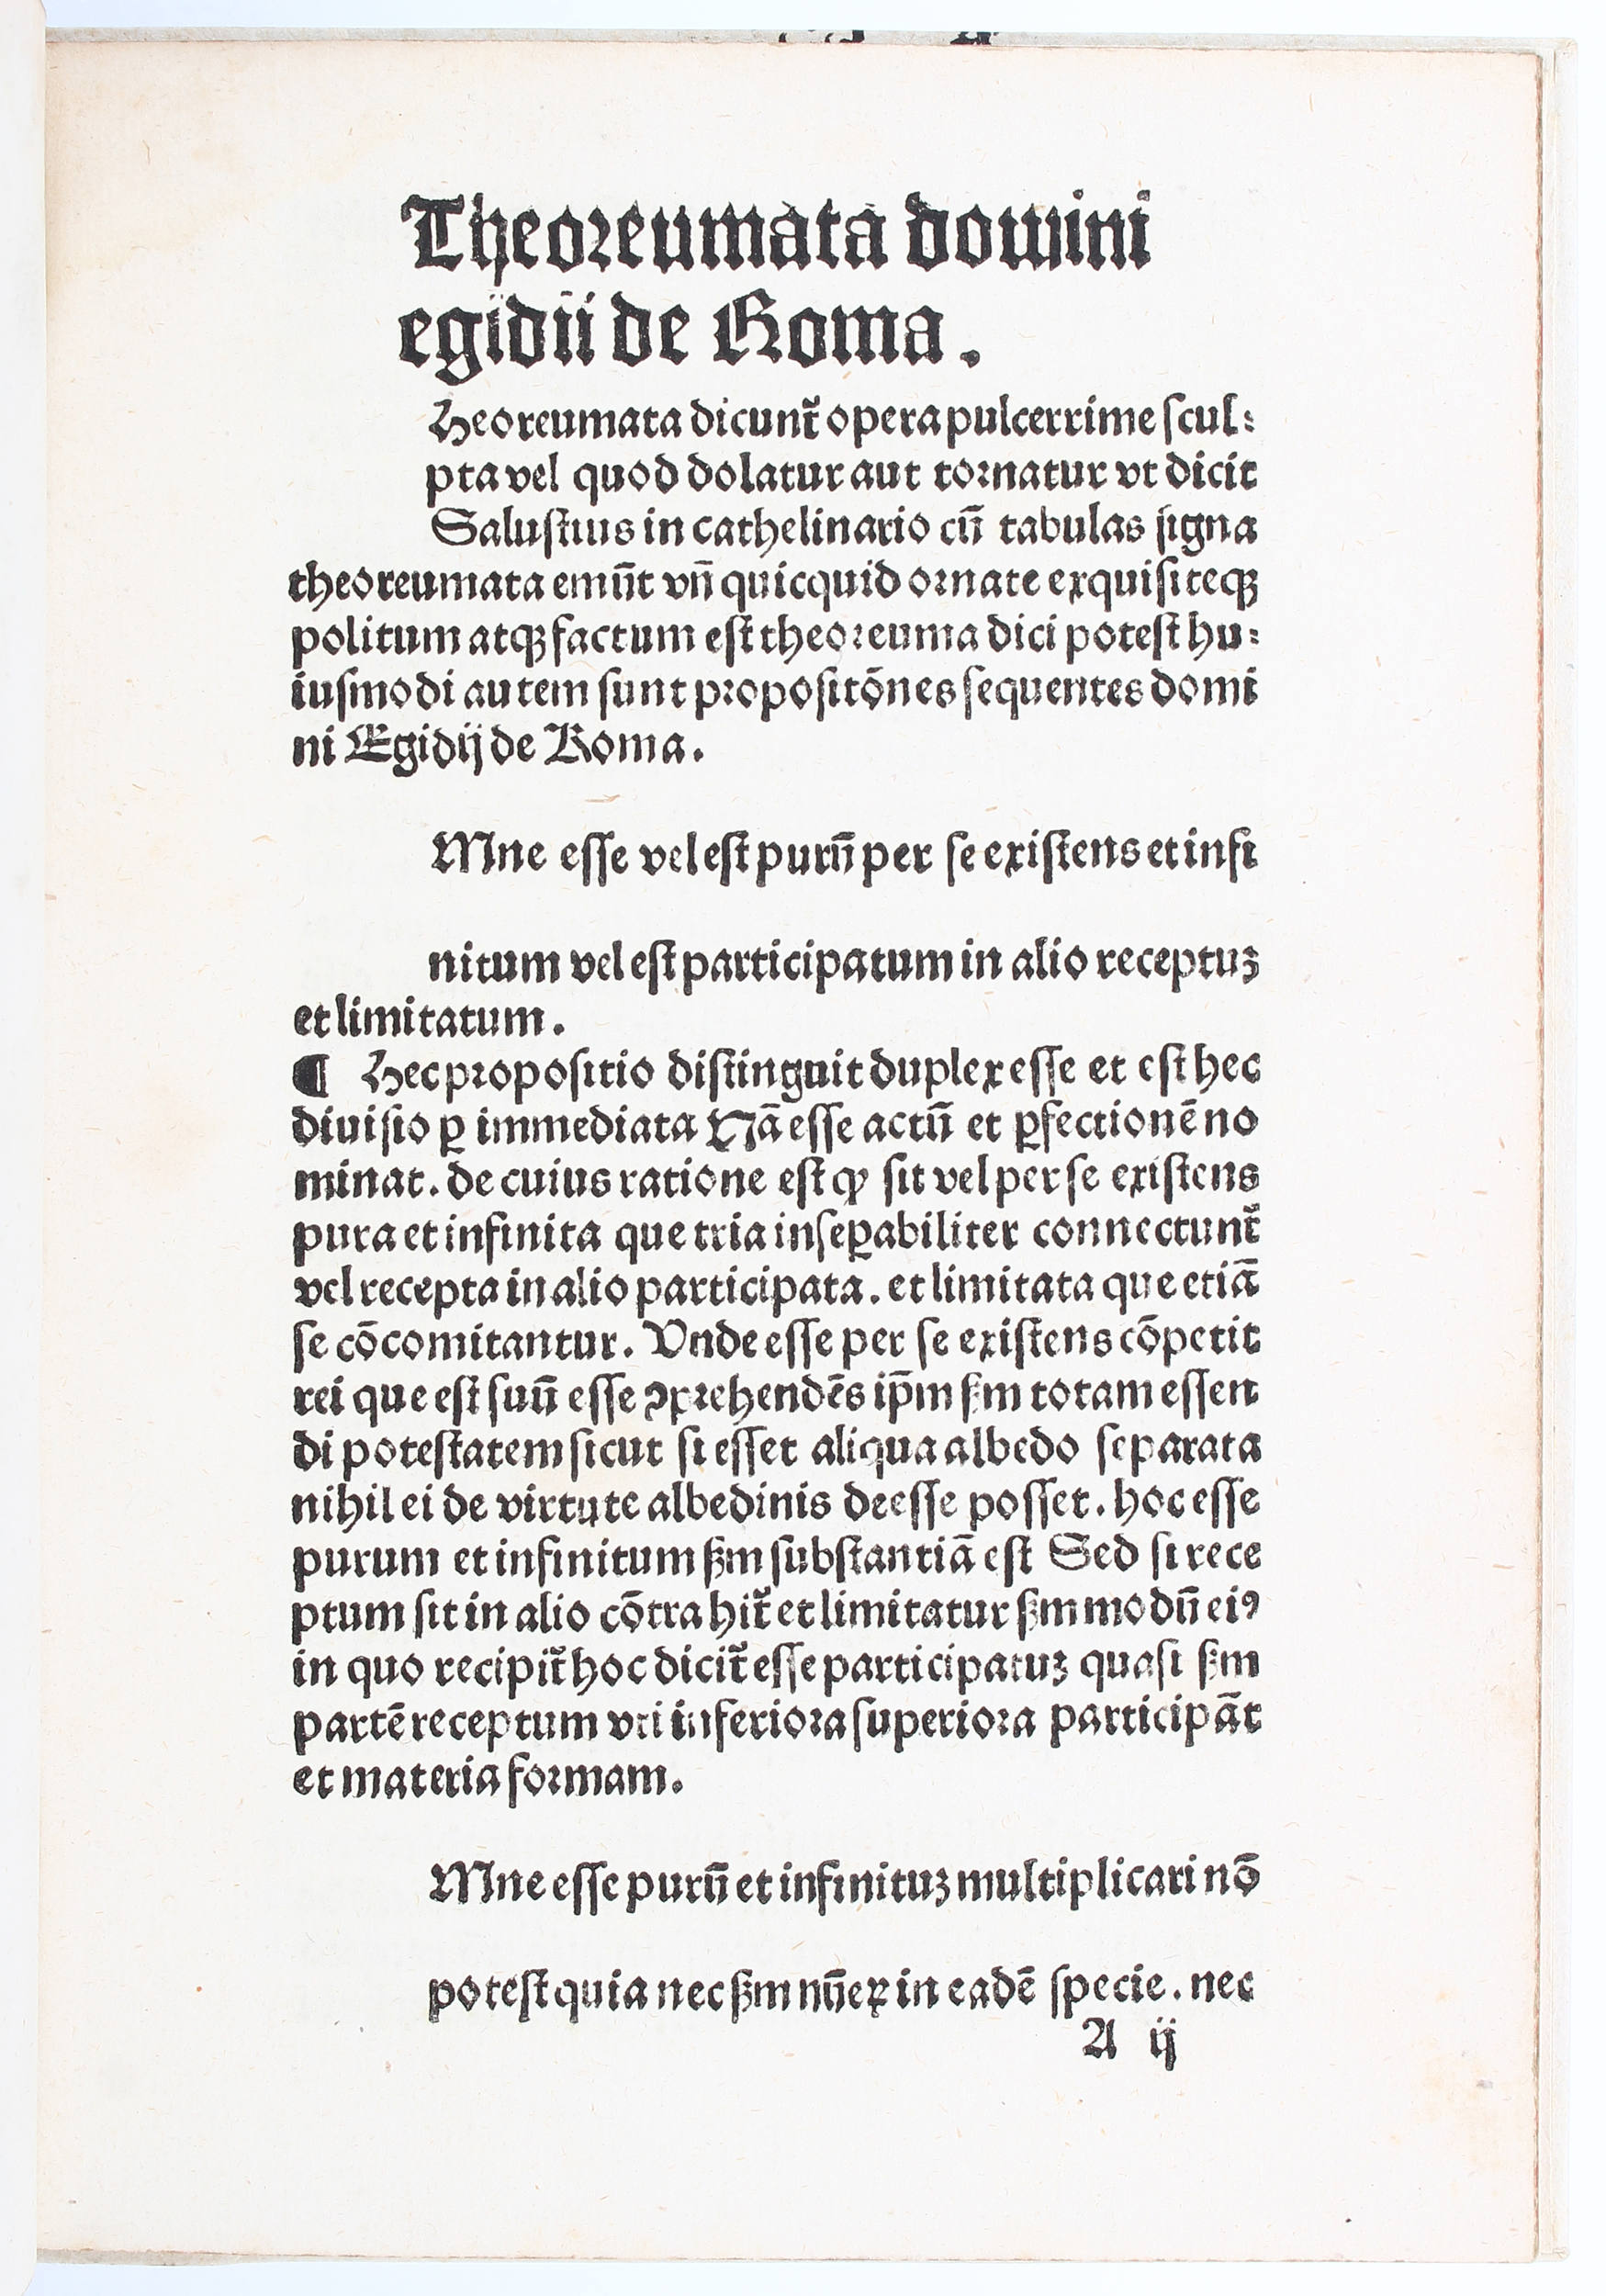 Theoreumata domini
egidii de Roma.
Heoreumata dicunt᷑ opera pulcerrime ſcul⸗
pta vel quod dolatur aut tornatur vt dicit
Saluſtius in cathelinario cū tabulas ſigna
theoreumata emūt vñ quicquid ornate exquiſiteqꝫ
politum atqꝫ factum eſt theoreuma dici poteſt hu⸗
iuſmodi autem ſunt propoſitōnes ſequentes domi
ni Egidij de Roma.
Mne eſſe vel eſt purū per ſe exiſtens et infi
nitum vel eſt participatum in alio receptuꝫ
et limitatum.
¶ Hec propoſitio diſtinguit duplex eſſe et eſt hec
diuiſio ꝑ immediata Nā eſſe actū et ꝑfectionē no
minat. de cuius ratione eſt ꝙ ſit vel per ſe exiſtens
pura et infinita que tria inſeꝑabiliter connectunt᷑
vel recepta in alio participata. et limitata que etiā
ſe cōcomitantur. Vnde eſſe per ſe exiſtens cōpetit
rei que eſt ſuū eſſe ꝯprehendēs ip̄m ſꝫm totam eſſen
di poteſtatem ſicut ſi eſſet aliqua albedo ſeparata
nihil ei de virtute albedinis deeſſe poſſet. hoc eſſe
purum et infinitum ſꝫm ſubſtantiā eſt Sed ſi rece
ptum ſit in alio cōtrahit᷑ et limitatur ſꝫm modū eiꝰ
in quo recipit᷑ hoc dicit᷑ eſſe participatuꝫ quaſi ſꝫm
partē receptum vti inferiora ſuperiora participāt
et materia formam.
Mne eſſe purū et infinituꝫ multiplicari nō
poteſt quia nec ſꝫm nūeꝝ in eadē ſpecie. nec
A ij